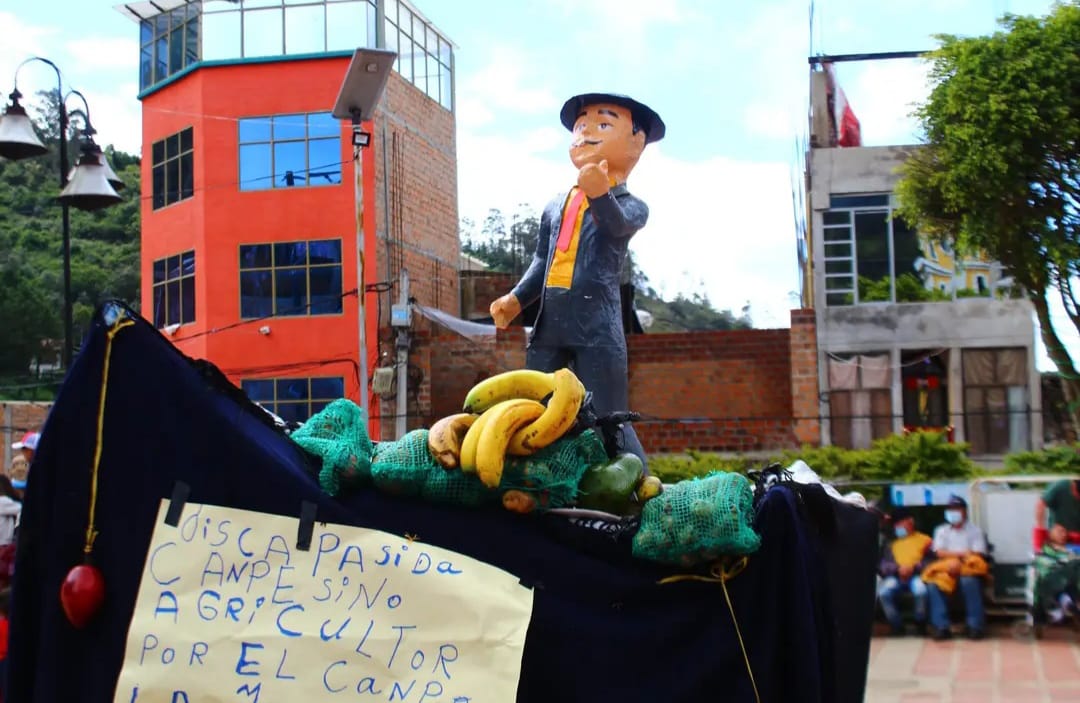 DISCAPASIDA
CANPESINO
AGRICULTOR
POR EL CANPO